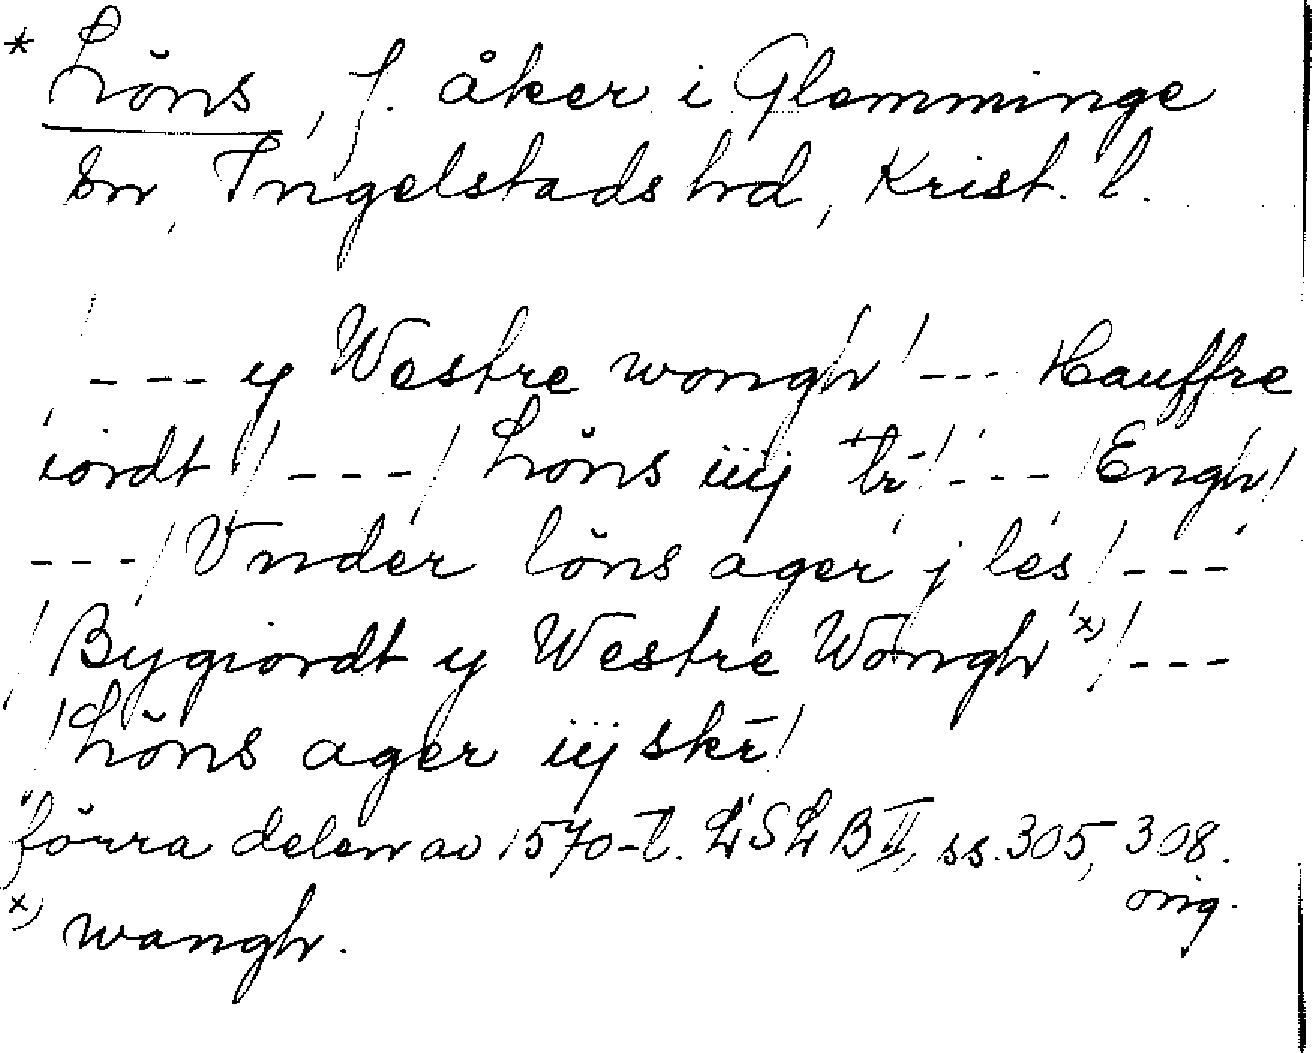 * Löns, f. åker i Glemminge
sn, Ingelstads hd, Krist. l.
/--- y Westre wongh/ --- Hauffre
iordt / --- / Löns iiij tr̄/ --- / Engh/
--- / Vnder löns ager j les / ---
/ Bygiordt y Westre Wongh x) / ---
/ Löns ager iij skr̄/
förra delen av 1570-t. LSLB II, ss. 305, 308.
orig.
x) wangh.